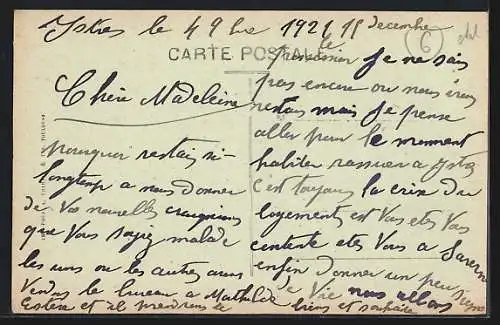 Istres le 4 9bre 1921 15 decembre
CARTE POSTALE
6
Chère Madeleine
pourquoi restais si
longtemp a nous donner
de Vos nouvelles craignions
que Vous soyez malade
les uns ou les autres avons
Vendus le bureau a Mathilde
Estere et il prendrons le
possession je ne sais
pas encore ou nous irons
restais mais je pense
aller pour le moment
habiter a Istres
c'est toujours la crise du
logements est Vous etes Vous
contente etes Vous a
enfin donner un peu
de Vie nous allons
bien et souhaite